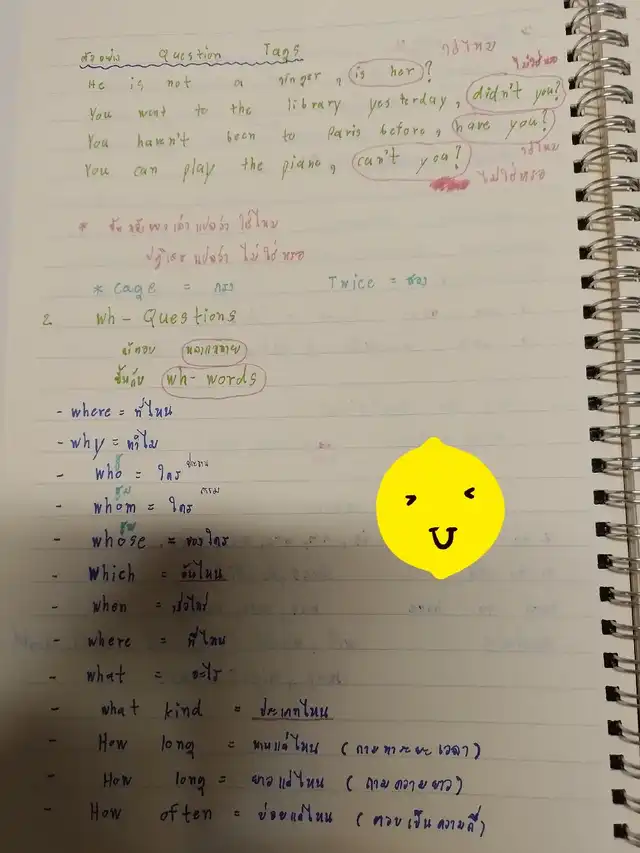 ตัวอย่าง Question Tags ใช่ไหม
He is not a singer, is her? ไม่ใช่หรอ
You went to the library yesterday, didn't you?
You haven't been to Paris before, have you? ใช่ไหม
You can play the piano, can't you? ไม่ใช่หรอ
แปลว่า ใช่ไหม
ปฏิเสธ แปลว่า ไม่ใช่หรอ
* cage = กรง Twice = สอง
2. wh - Questions
คำตอบ หลากหลาย
ขึ้นต้น wh - words
- where = ที่ไหน
- why = ทำไม
- who = ใคร ประธาน
- whom = ใคร กรรม
- whose = ของใคร
- which = อันไหน
- when = เมื่อไหร่
- where = ที่ไหน
- what = อะไร
- what kind = ประเภทไหน
- How long = นานแค่ไหน (ถามหาระยะเวลา)
- How long = ยาวแค่ไหน (ถามความยาว)
- How often = บ่อยแค่ไหน (ตอบเป็นความถี่)